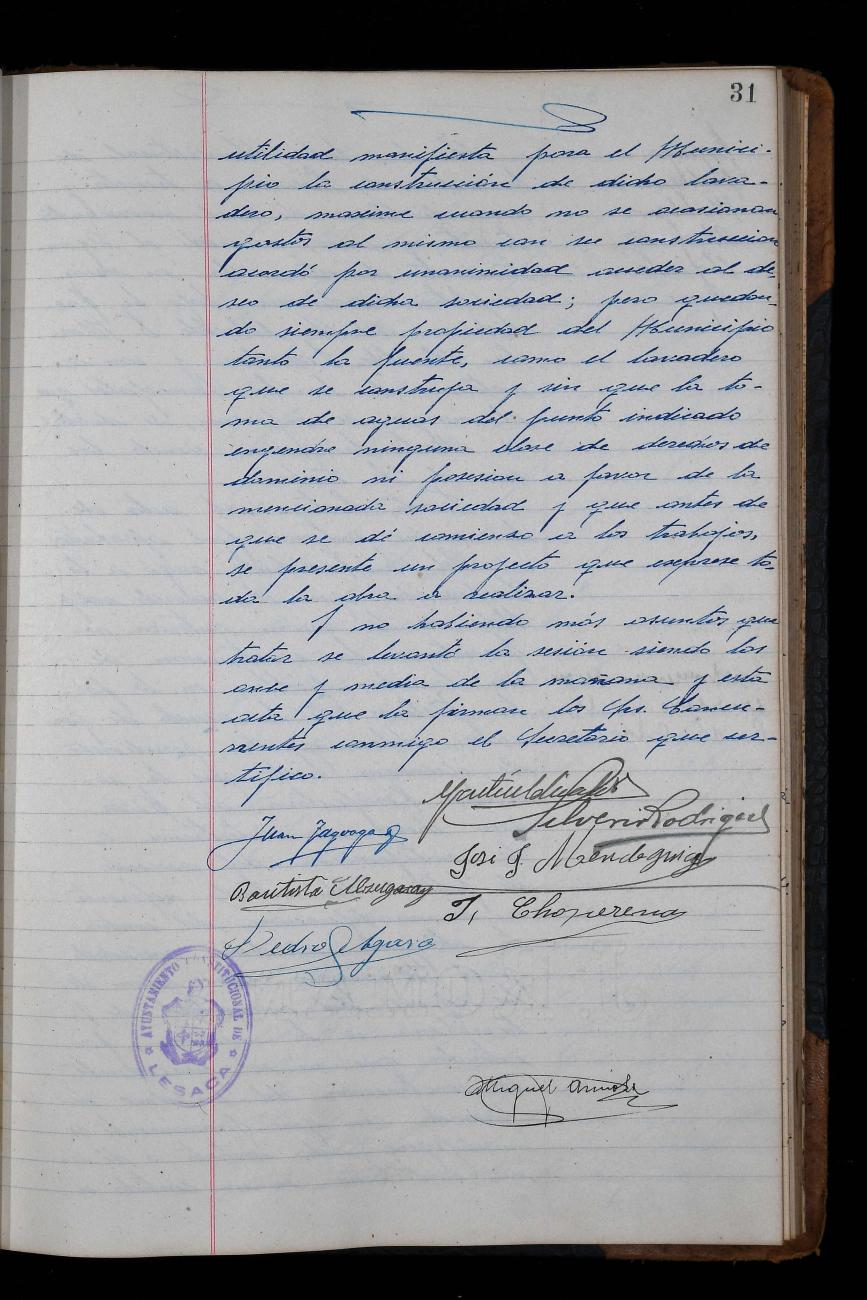 31
utilidad manifiesta para el Munici-
pio la construcción de dicho lava-
dero, maxime cuando no se ocasionan
gastos al mismo con su construccion
acordó por unanimidad acceder al de-
seo de dicha sociedad; pero quedan-
do siempre propiedad del Municipio
tanto la fuente, como el lavadero
que se construya y sin que la to-
ma de aguas del punto indicado
engendre ninguna clase de derechos de
dominio ni posesion a favor de la
mencionada sociedad y que antes de
que se dé comienso a los trabajos,
se presente un proyecto que exprese to-
da la obra a realizar.
Y no habiendo más asuntos que
tratar se levantó la sesión siendo las
once y media de la mañana y esta
acta que la firman los Srs. Concu-
rrentes conmigo el Secretario que cer-
tifico.
Silverio Rodriguez
Juan
José J. Mendeguia
Bautista
T. Choperena
Pedro
AYUNTAMIENTO CONSTITUCIONAL DE
LESACA
Miguel